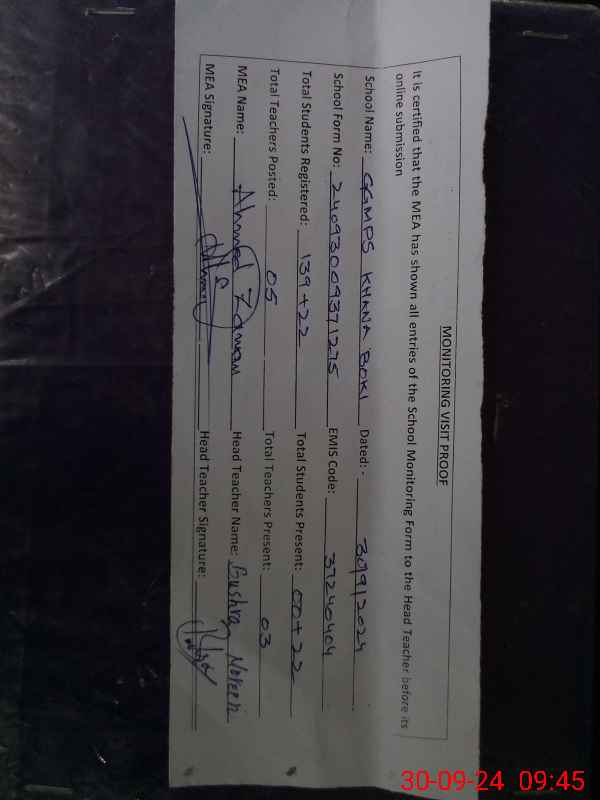 MONITORING VISIT PROOF
It is certified that the MEA has shown all entries of the School Monitoring Form to the Head Teacher before its
online submission
School Name: GGMPS KHANA BOKI Dated: - 30/9/2024
School Form No: 24093009371275 EMIS Code: 37240404
Total Students Registered: 139+22 Total Students Present: 00+22
Total Teachers Posted: 05 Total Teachers Present: 03
MEA Name: Ahmed Zaman Head Teacher Name: Bushra Noreen
MEA Signature: Head Teacher Signature:
30-09-24 09:45